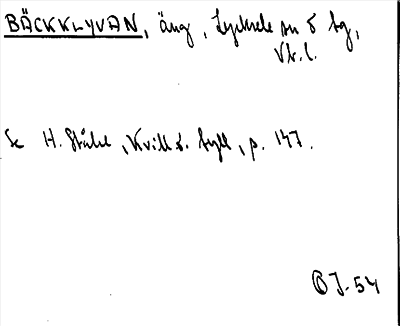 BÄCKKLYVAN, äng, Lycksele sn o bg,
Vb. l.
Se H. Ståhl, Kvill o. tyll, p. 147.
BJ-54